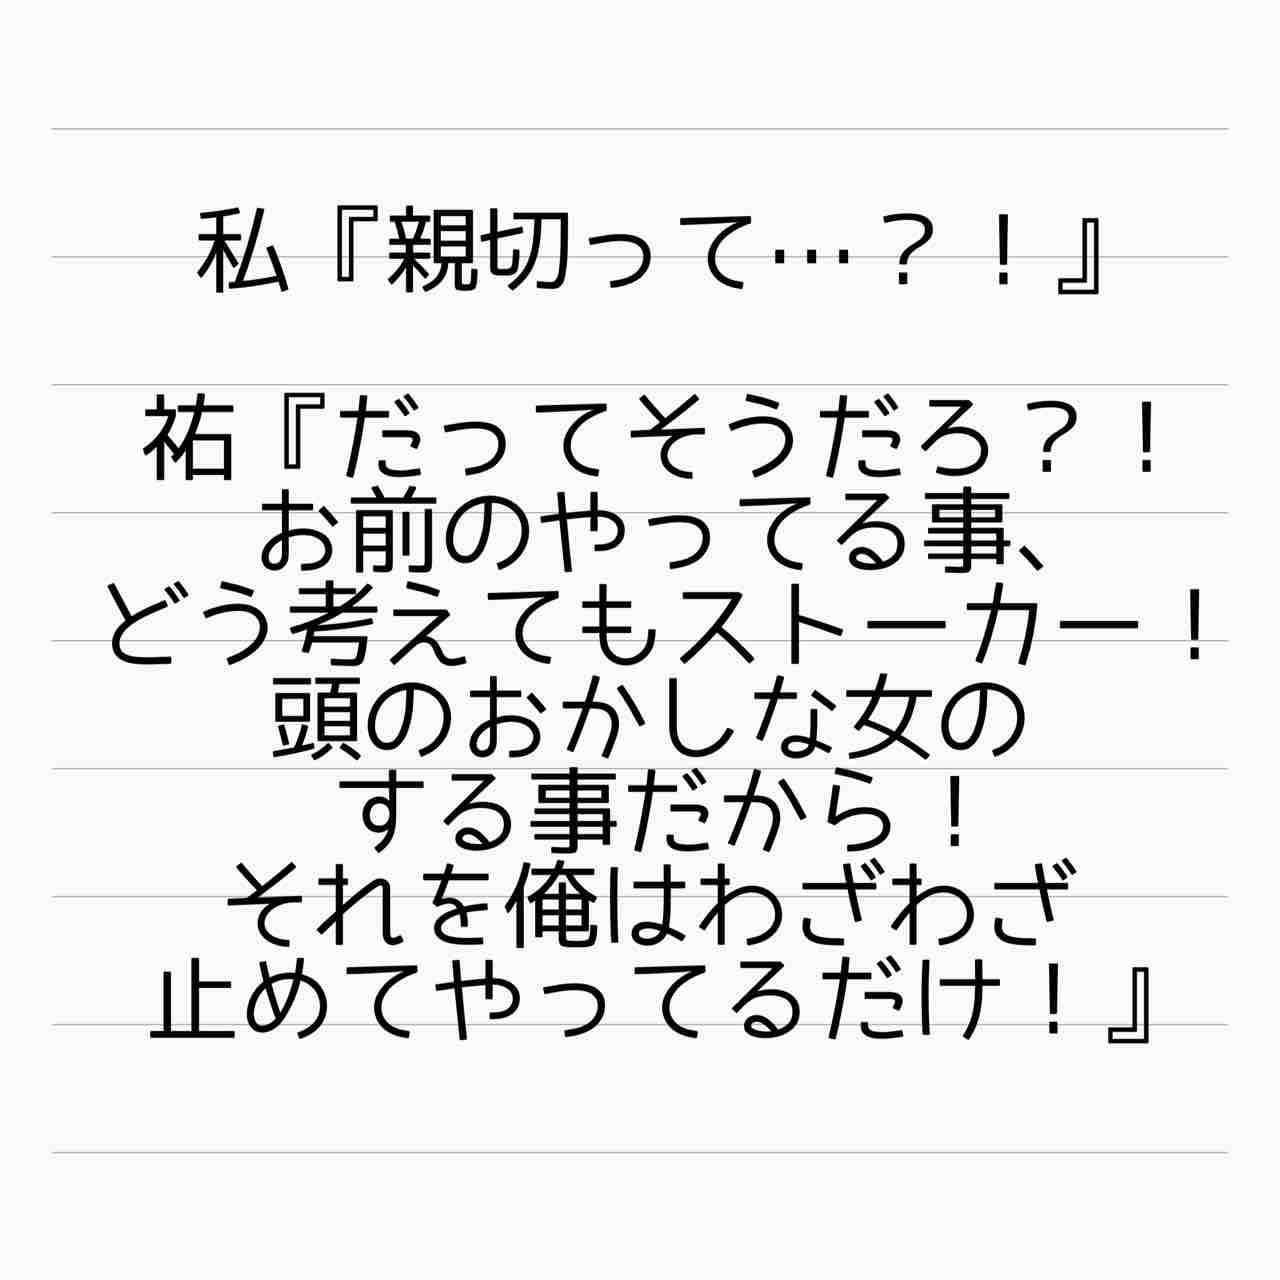 私『親切って…？！』
祐『だってそうだろ？！
お前のやってる事、
どう考えてもストーカー！
頭のおかしな女の
する事だから！
それを俺はわざわざ
止めてやってるだけ！』